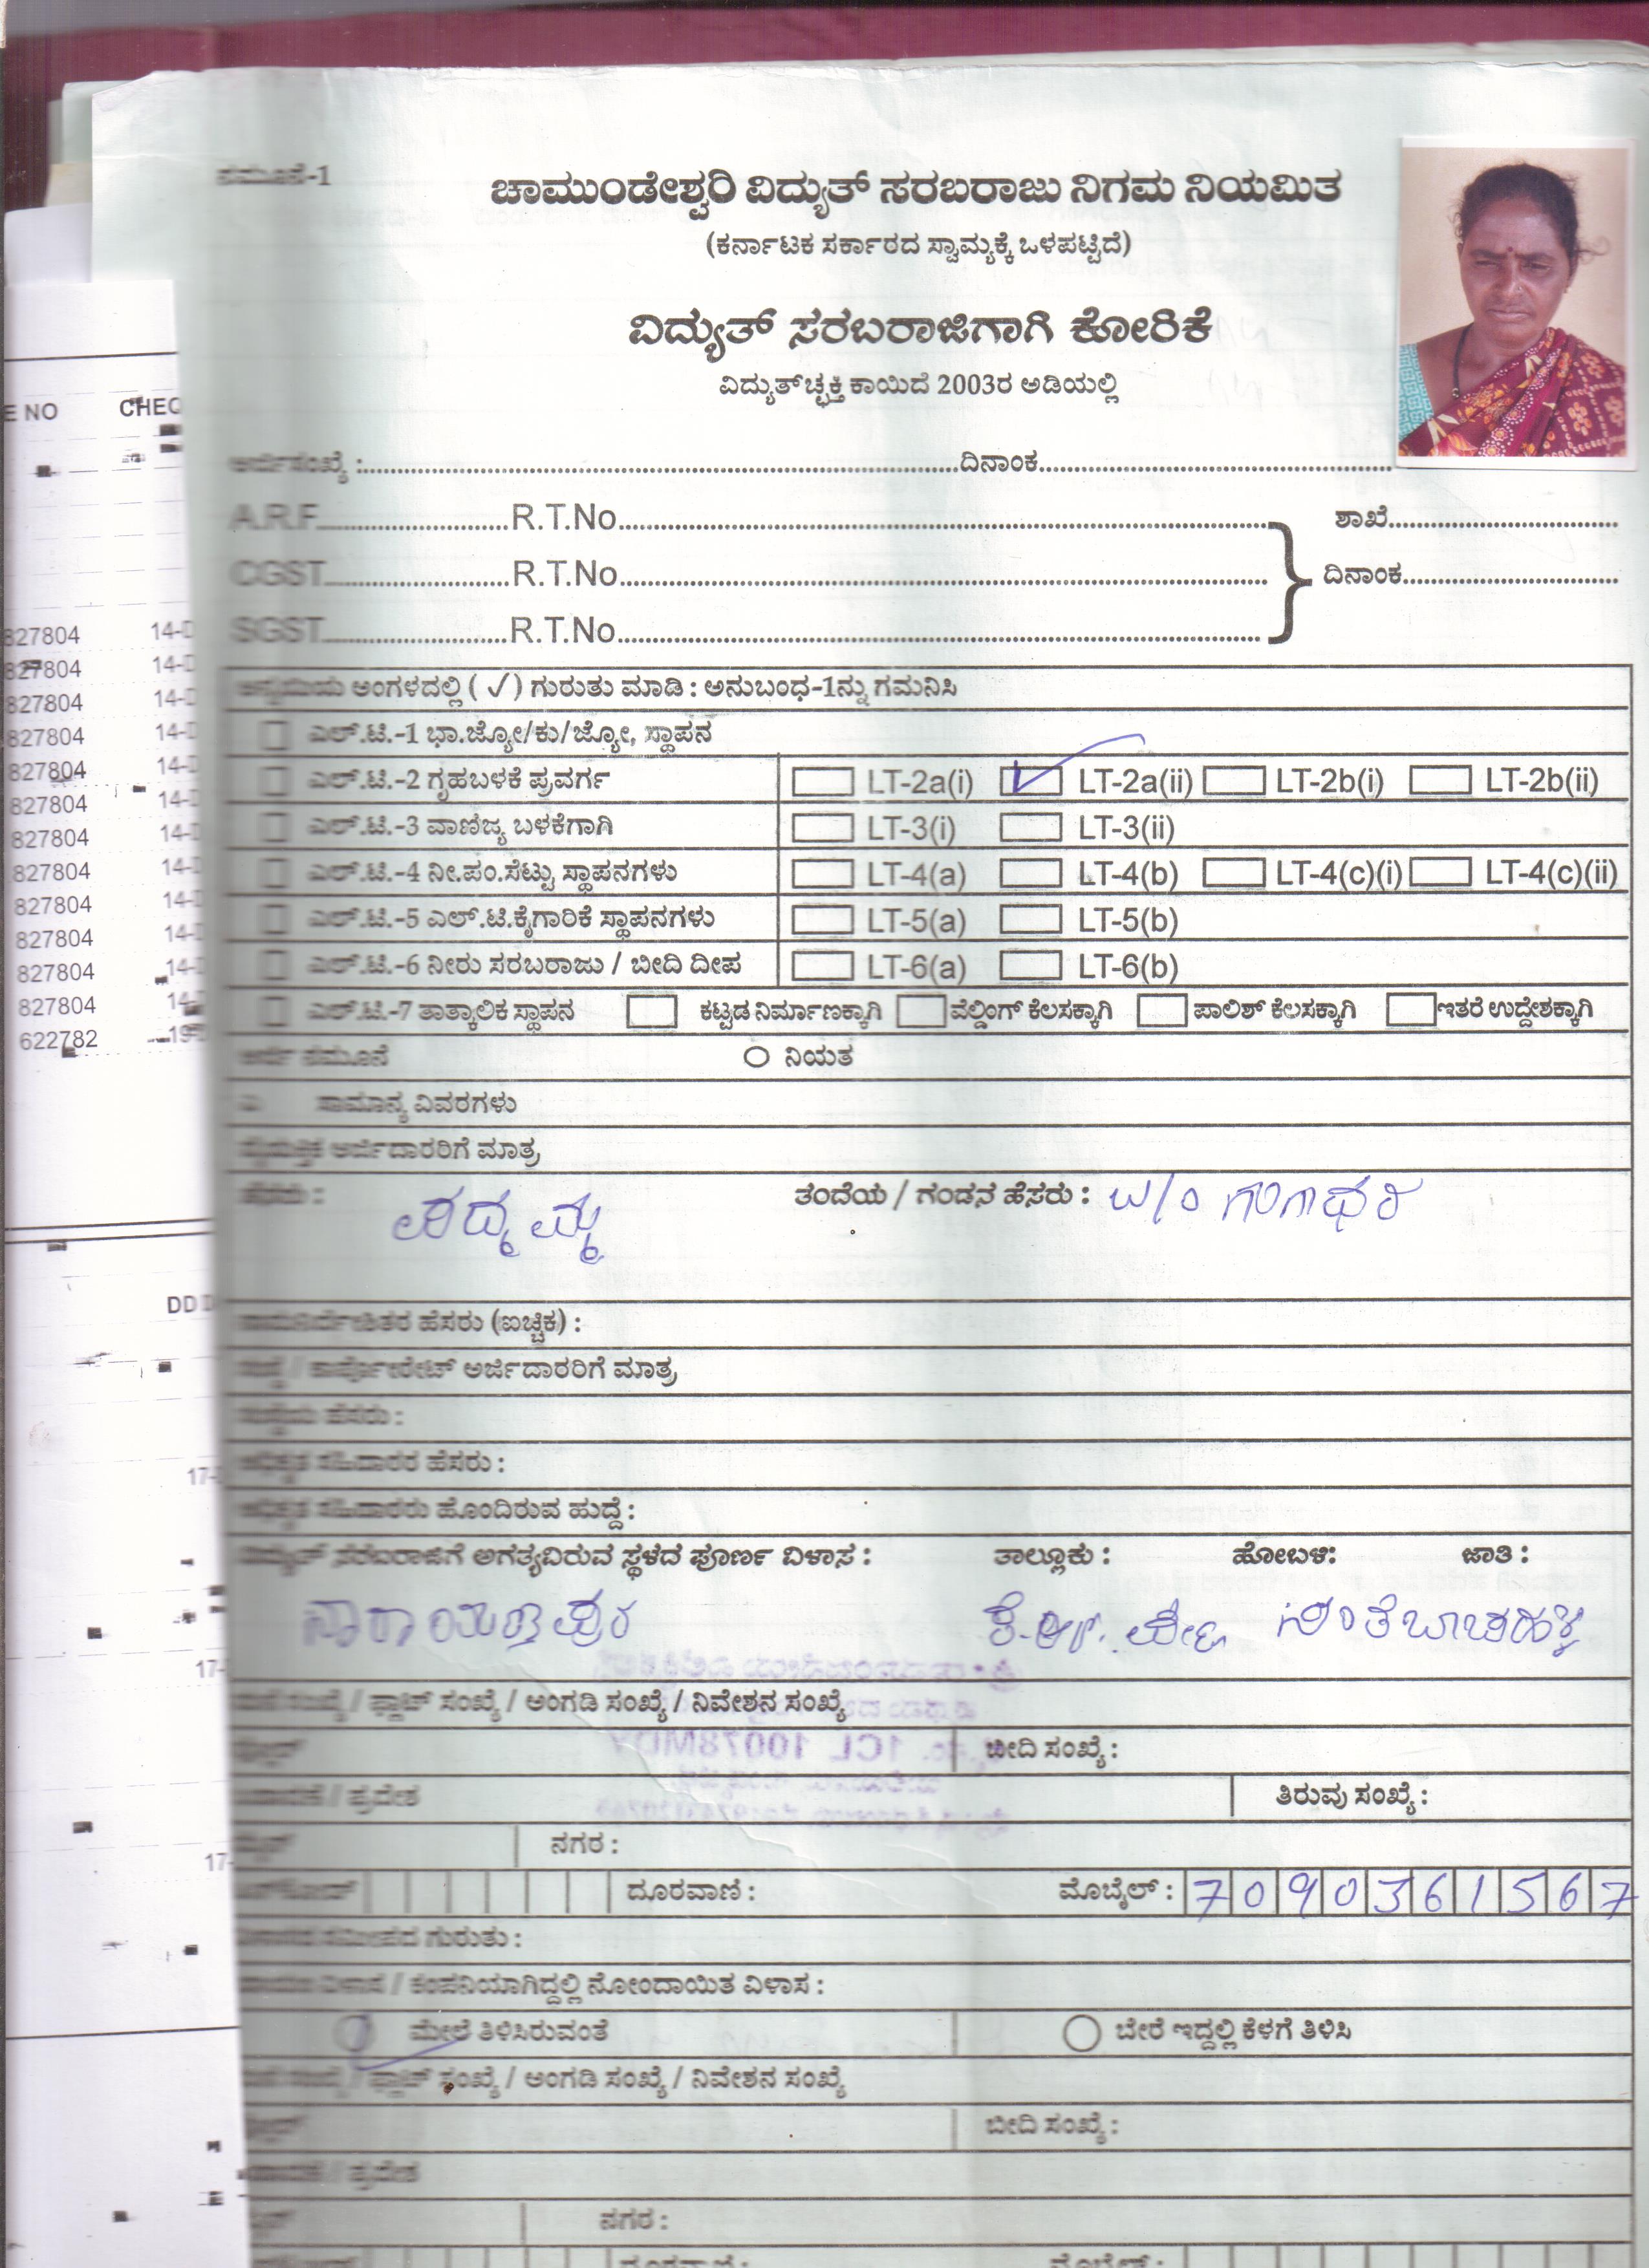 ನಮೂನೆ-1
ಚಾಮುಂಡೇಶ್ವರಿ ವಿದ್ಯುತ್ ಸರಬರಾಜು ನಿಗಮ ನಿಯಮಿತ
(ಕರ್ನಾಟಕ ಸರ್ಕಾರದ ಸ್ವಾಮ್ಯಕ್ಕೆ ಒಳಪಟ್ಟಿದೆ)
ವಿದ್ಯುತ್ ಸರಬರಾಜಿಗಾಗಿ ಕೋರಿಕೆ
ವಿದ್ಯುತ್‌ಚ್ಛಕ್ತಿ ಕಾಯಿದೆ 2003ರ ಅಡಿಯಲ್ಲಿ
E NO CHEC
ಅರ್ಜಿಸಂಖ್ಯೆ : ದಿನಾಂಕ
A.R.F. R.T.No. ಶಾಖೆ
CGST R.T.No. ದಿನಾಂಕ
SGST R.T.No.
827804 14-D
827804 14-D
827804 14-D
827804 14-D
827804 14-D
827804 14-D
827804 14-D
827804 14-D
827804 14-D
827804 14-D
827804 14-D
827804 14-D
622782 19-
ಅಂಗಳದಲ್ಲಿ ( ✓ ) ಗುರುತು ಮಾಡಿ : ಅನುಬಂಧ-1ನ್ನು ಗಮನಿಸಿ
ಎಲ್.ಟಿ.-1 ಭಾ.ಜ್ಯೋ/ಕು/ಜ್ಯೋ, ಸ್ಥಾಪನ
ಎಲ್.ಟಿ.-2 ಗೃಹಬಳಕೆ ಪ್ರವರ್ಗ LT-2a(i) ✓ LT-2a(ii) LT-2b(i) LT-2b(ii)
ಎಲ್.ಟಿ.-3 ವಾಣಿಜ್ಯ ಬಳಕೆಗಾಗಿ LT-3(i) LT-3(ii)
ಎಲ್.ಟಿ.-4 ನೀ.ಪಂ.ಸೆಟ್ಟು ಸ್ಥಾಪನಗಳು LT-4(a) LT-4(b) LT-4(c)(i) LT-4(c)(ii)
ಎಲ್.ಟಿ.-5 ಎಲ್.ಟಿ.ಕೈಗಾರಿಕೆ ಸ್ಥಾಪನಗಳು LT-5(a) LT-5(b)
ಎಲ್.ಟಿ.-6 ನೀರು ಸರಬರಾಜು / ಬೀದಿ ದೀಪ LT-6(a) LT-6(b)
ಎಲ್.ಟಿ.-7 ತಾತ್ಕಾಲಿಕ ಸ್ಥಾಪನ ಕಟ್ಟಡ ನಿರ್ಮಾಣಕ್ಕಾಗಿ ವೆಲ್ಡಿಂಗ್ ಕೆಲಸಕ್ಕಾಗಿ ಪಾಲಿಶ್ ಕೆಲಸಕ್ಕಾಗಿ ಇತರೆ ಉದ್ದೇಶಕ್ಕಾಗಿ
ಅರ್ಜಿ ನಮೂನೆ ನಿಯತ
ಸಾಮಾನ್ಯ ವಿವರಗಳು
ವೈಯಕ್ತಿಕ ಅರ್ಜಿದಾರರಿಗೆ ಮಾತ್ರ
ಹೆಸರು : ಪದ್ಮಮ್ಮ ತಂದೆಯ / ಗಂಡನ ಹೆಸರು : w/o ಗಂಗಾಧರ
DD
ನಾಮನಿರ್ದೇಶಿತರ ಹೆಸರು (ಐಚ್ಚಿಕ) :
ಸಂಸ್ಥೆ / ಕಾರ್ಪೋರೇಟ್ ಅರ್ಜಿದಾರರಿಗೆ ಮಾತ್ರ
ಸಂಸ್ಥೆಯ ಹೆಸರು :
ಅಧಿಕೃತ ಸಹಿದಾರರ ಹೆಸರು :
17-
ಅಧಿಕೃತ ಸಹಿದಾರರು ಹೊಂದಿರುವ ಹುದ್ದೆ :
ವಿದ್ಯುತ್ ಸರಬರಾಜಿಗೆ ಅಗತ್ಯವಿರುವ ಸ್ಥಳದ ಪೂರ್ಣ ವಿಳಾಸ : ತಾಲ್ಲೂಕು : ಹೋಬಳಿ: ಜಾತಿ :
ನಾರಾಯಣಪುರ ಕೆ.ಆರ್. ಪೇಟೆ ಸಂತೆಬಾಚಹಳ್ಳಿ
17-
ಮನೆ ಸಂಖ್ಯೆ / ಫ್ಲಾಟ್ ಸಂಖ್ಯೆ / ಅಂಗಡಿ ಸಂಖ್ಯೆ / ನಿವೇಶನ ಸಂಖ್ಯೆ
ಬೀದಿ ಸಂಖ್ಯೆ :
ಬಡಾವಣೆ / ಪ್ರದೇಶ ತಿರುವು ಸಂಖ್ಯೆ :
17- ನಗರ :
ಪಿನ್‌ಕೋಡ್ ದೂರವಾಣಿ : ಮೊಬೈಲ್ : 7090361567
ಸಮೀಪದ ಗುರುತು :
ವಿಳಾಸ / ಕಂಪನಿಯಾಗಿದ್ದಲ್ಲಿ ನೋಂದಾಯಿತ ವಿಳಾಸ :
ಮೇಲೆ ತಿಳಿಸಿರುವಂತೆ ಬೇರೆ ಇದ್ದಲ್ಲಿ ಕೆಳಗೆ ತಿಳಿಸಿ
ಮನೆ ಸಂಖ್ಯೆ / ಫ್ಲಾಟ್ ಸಂಖ್ಯೆ / ಅಂಗಡಿ ಸಂಖ್ಯೆ / ನಿವೇಶನ ಸಂಖ್ಯೆ
ಬೀದಿ ಸಂಖ್ಯೆ :
ಬಡಾವಣೆ / ಪ್ರದೇಶ
ನಗರ :
ದೂರವಾಣಿ : ಮೊಬೈಲ್ :